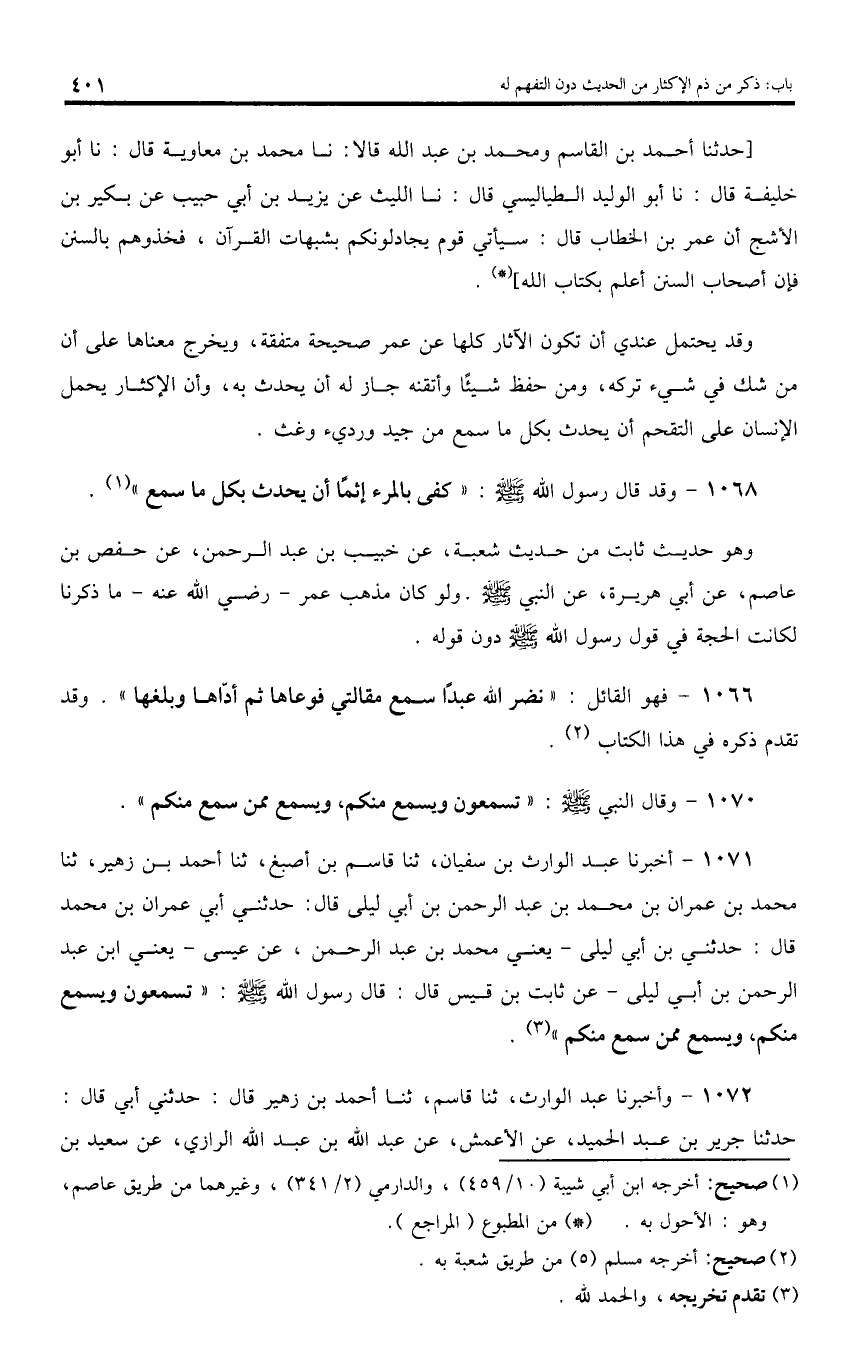 باب: ذكر من ذم الإكثار من الحديث دون التفهم له ٤٠١
[حدثنا أحمد بن القاسم ومحمد بن عبد الله قالا: نا محمد بن معاوية قال : نا أبو
خليفة قال : نا أبو الوليد الطيالسي قال : نا الليث عن يزيد بن أبي حبيب عن بكير بن
الأشج أن عمر بن الخطاب قال : سيأتي قوم يجادلونكم بشبهات القرآن ، فخذوهم بالسنن
فإن أصحاب السنن أعلم بكتاب الله](*) .
وقد يحتمل عندي أن تكون الآثار كلها عن عمر صحيحة متفقة، ويخرج معناها على أن
من شك في شيء تركه، ومن حفظ شيئًا وأتقنه جاز له أن يحدث به، وأن الإكثار يحمل
الإنسان على التقحم أن يحدث بكل ما سمع من جيد ورديء وغث .
١٠٦٨ - وقد قال رسول الله ﷺ : « كفى بالمرء إثمًا أن يحدث بكل ما سمع »(١) .
وهو حديث ثابت من حديث شعبة، عن خبيب بن عبد الرحمن، عن حفص بن
عاصم، عن أبي هريرة، عن النبي ﷺ .ولو كان مذهب عمر - رضي الله عنه - ما ذكرنا
لكانت الحجة في قول رسول الله ﷺ دون قوله .
١٠٦٦ - فهو القائل : « نضر الله عبدًا سمع مقالتي فوعاها ثم أدّاها وبلغها » . وقد
تقدم ذكره في هذا الكتاب (٢) .
١٠٧٠ - وقال النبي ﷺ : « تسمعون ويسمع منكم، ويسمع ممن سمع منكم » .
١٠٧١ - أخبرنا عبد الوارث بن سفيان، ثنا قاسم بن أصبغ، ثنا أحمد بن زهير، ثنا
محمد بن عمران بن محمد بن عبد الرحمن بن أبي ليلى قال: حدثني أبي عمران بن محمد
قال : حدثني بن أبي ليلى - يعني محمد بن عبد الرحمن ، عن عيسى - يعني ابن عبد
الرحمن بن أبي ليلى - عن ثابت بن قيس قال : قال رسول الله ﷺ : « تسمعون ويسمع
منكم، ويسمع ممن سمع منكم »(٣) .
١٠٧٢ - وأخبرنا عبد الوارث، ثنا قاسم، ثنا أحمد بن زهير قال : حدثني أبي قال :
حدثنا جرير بن عبد الحميد، عن الأعمش، عن عبد الله بن عبد الله الرازي، عن سعيد بن
(١) صحيح: أخرجه ابن أبي شيبة (١٠/ ٤٥٩) ، والدارمي (٢/ ٣٤١) ، وغيرهما من طريق عاصم،
وهو : الأحول به . (*) من المطبوع ( المراجع ).
(٢) صحيح: أخرجه مسلم (٥) من طريق شعبة به .
(٣) تقدم تخريجه ، والحمد لله .